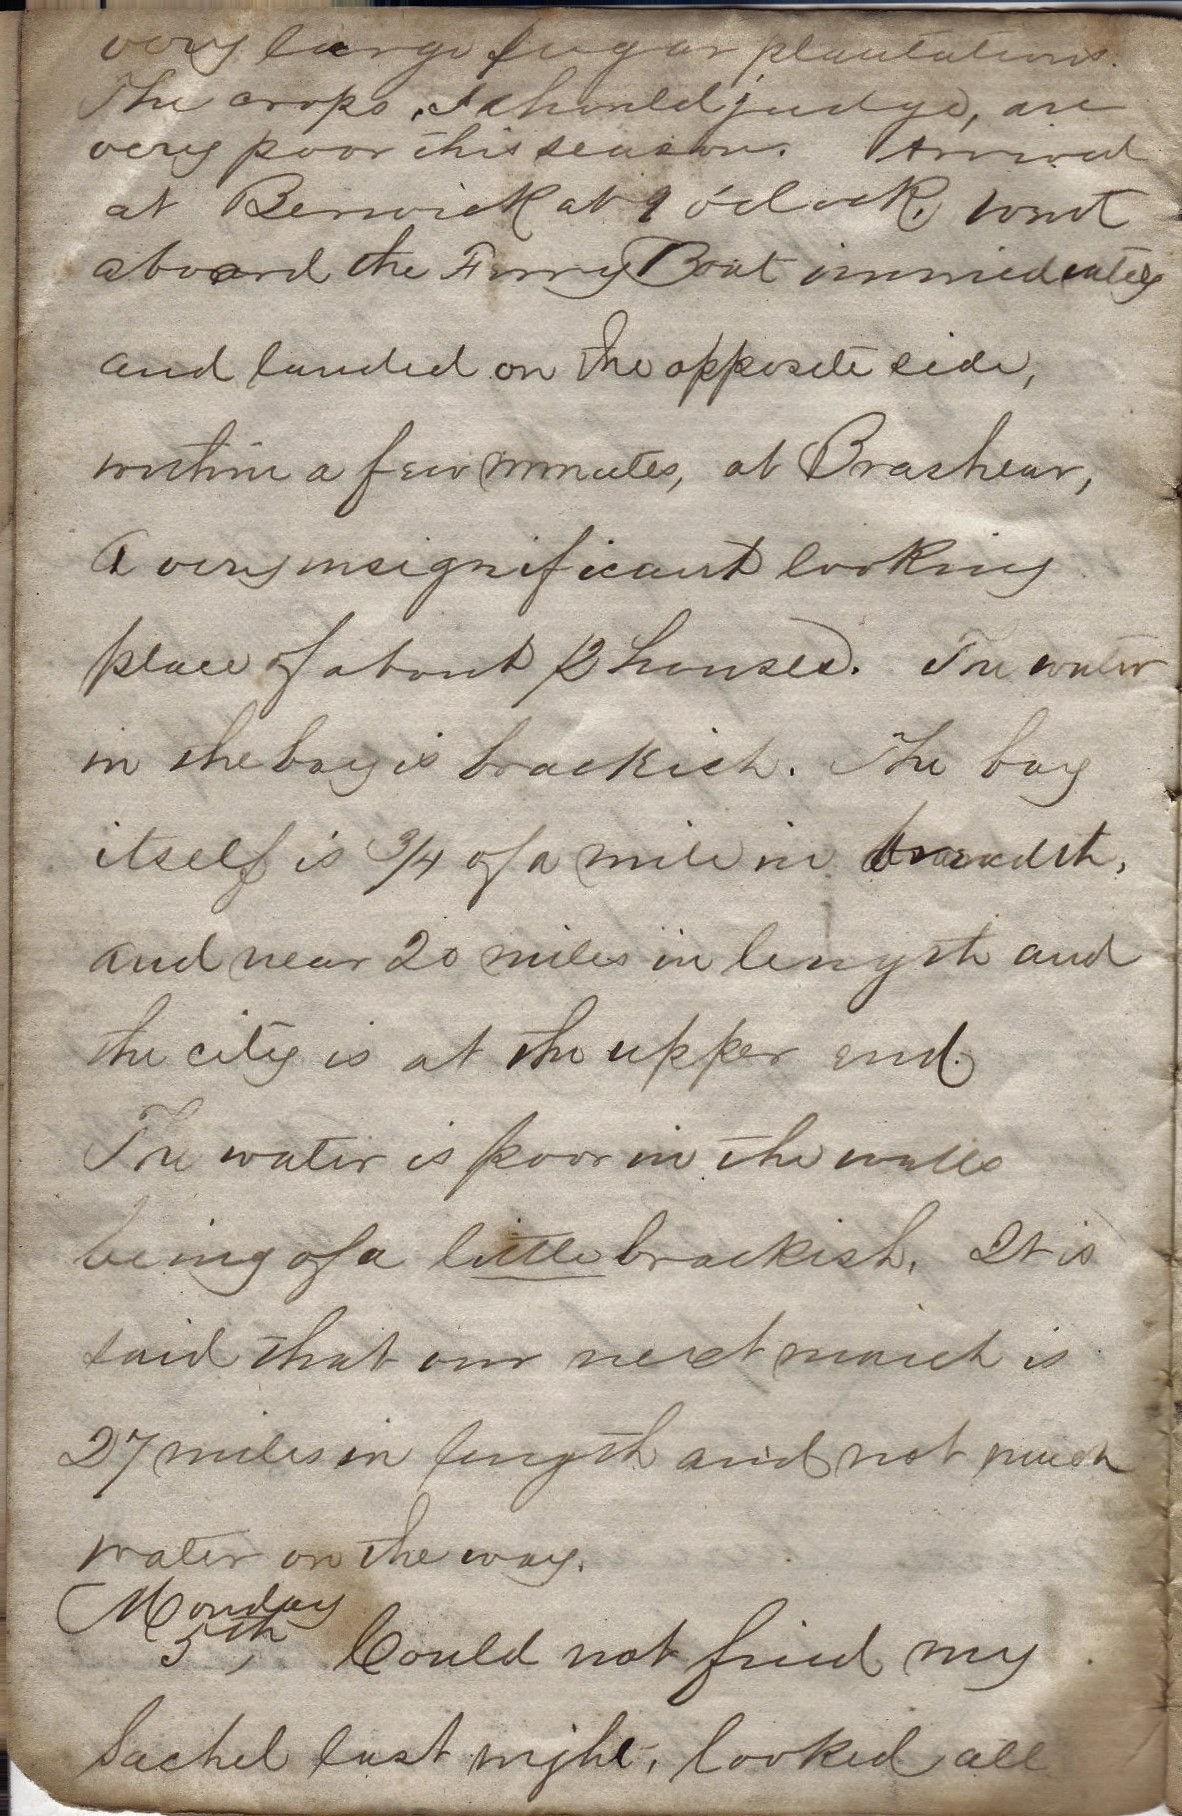 very large sugar plantations.
The crops, I should judge, are
very poor this season. Arrived
at Berwick at 9 o'clock. went
aboard the Ferry Boat immediately
and landed on the opposite side,
within a few minutes, at Brashear,
A very insignificant looking
place of about 12 houses. The water
in the bay is brackish. The bay
itself is 3/4 of a mile in breadth,
and near 20 miles in length and
the city is at the upper end.
The water is poor in the wells
being of a little brackish. It is
said that our next march is
27 miles in length and not much
water on the way.
Monday
5th, Could not find my
Sachel last night, looked all